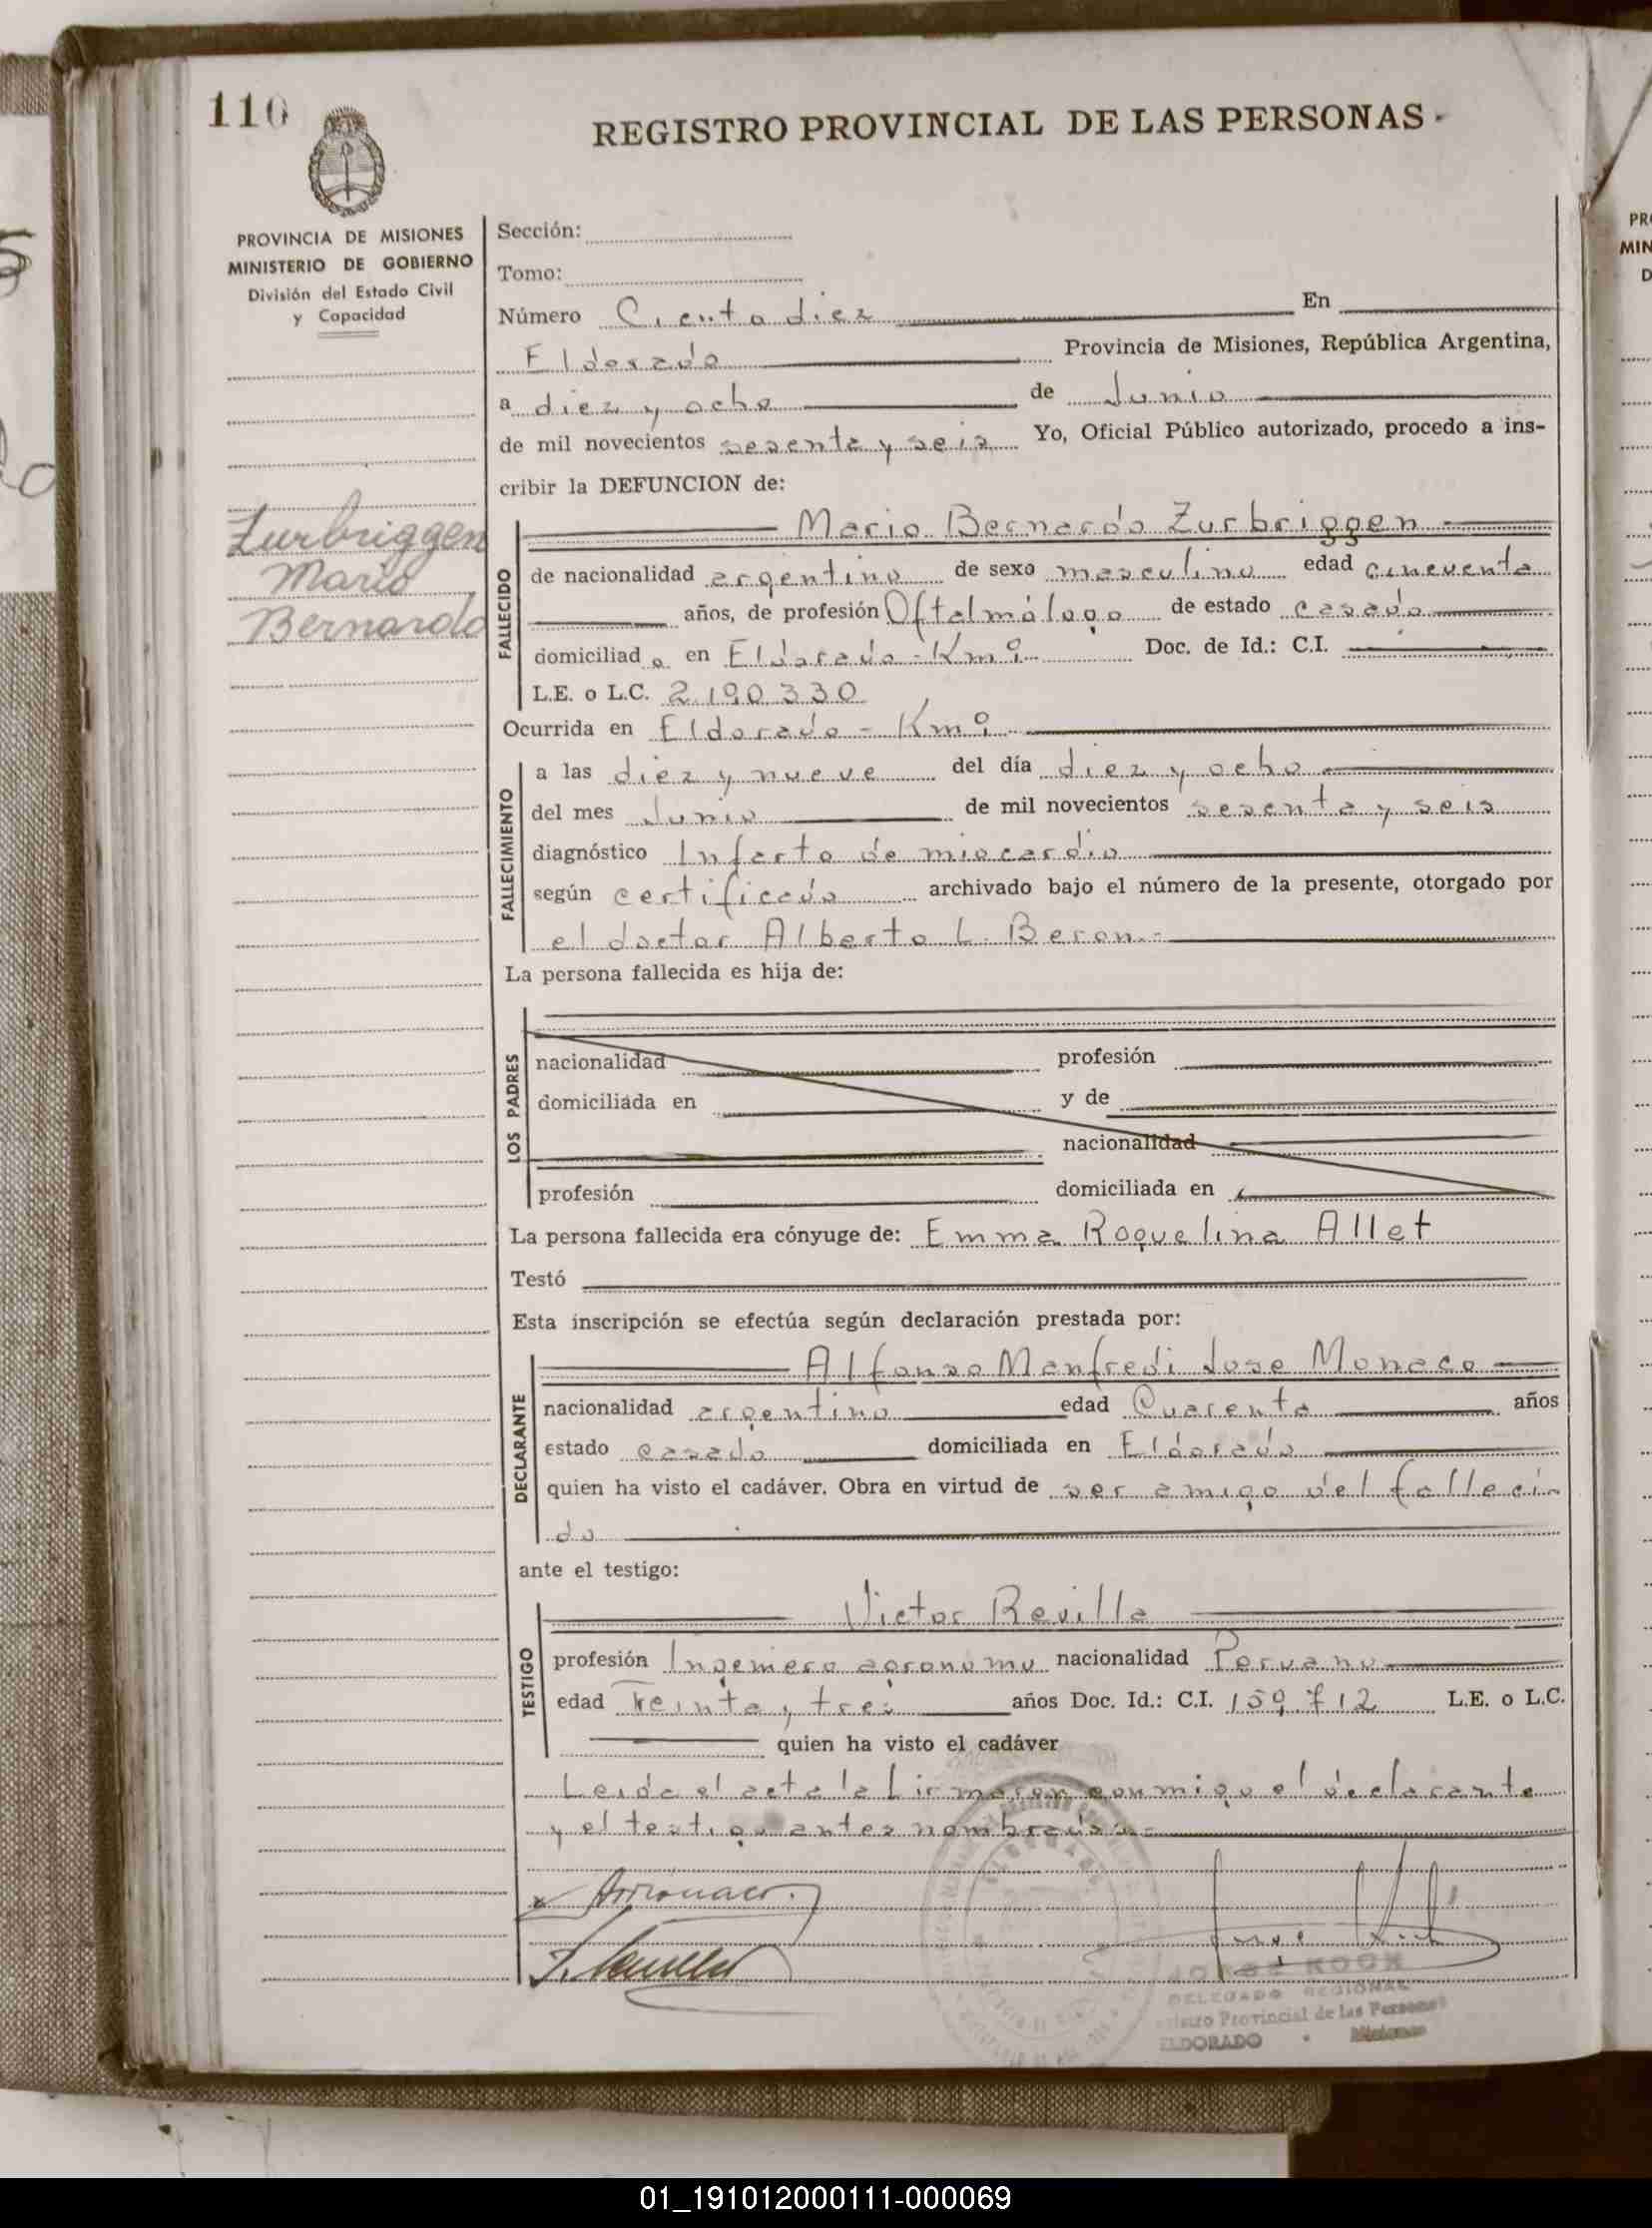 110
REGISTRO PROVINCIAL DE LAS PERSONAS
PROVINCIA DE MISIONES
MINISTERIO DE GOBIERNO
División del Estado Civil
y Capacidad
Zurbriggen
Mario
Bernardo
Sección:
Tomo:
Número Ciento diez En
Eldorado Provincia de Misiones, República Argentina,
a diez y ocho de Junio
de mil novecientos sesenta y seis Yo, Oficial Público autorizado, procedo a ins-
cribir la DEFUNCION de:
FALLECIDO
Mario Bernardo Zurbriggen
de nacionalidad argentino de sexo masculino edad cincuenta
años, de profesión Oftalmólogo de estado casado
domiciliad o en Eldorado - Km 9 Doc. de Id.: C.I.
L.E. o L.C. 2.190.330
Ocurrida en Eldorado - Km 9
FALLECIMIENTO
a las diez y nueve del día diez y ocho
del mes Junio de mil novecientos sesenta y seis
diagnóstico Infarto de miocardio
según certificado archivado bajo el número de la presente, otorgado por
el doctor Alberto L. Beron.-
La persona fallecida es hija de:
LOS PADRES
nacionalidad profesión
domiciliada en y de
nacionalidad
profesión domiciliada en
La persona fallecida era cónyuge de: Emma Roquelina Allet
Testó
Esta inscripción se efectúa según declaración prestada por:
DECLARANTE
Alfonso Manfredi Jose Monaco
nacionalidad argentino edad Cuarenta años
estado casado domiciliada en Eldorado
quien ha visto el cadáver. Obra en virtud de ser amigo del falleci-
do
ante el testigo:
TESTIGO
Victor Revilla
profesión Ingeniero agronomo nacionalidad Peruano
edad Treinta y tres años Doc. Id.: C.I. 159.712 L.E. o L.C.
quien ha visto el cadáver
Leida el acta la firmaron conmigo el declarante
y el testigo antes nombrados.-
JORGE KOCH
DELEGADO REGIONAL
Registro Provincial de las Personas
ELDORADO - Misiones
01_191012000111-000069